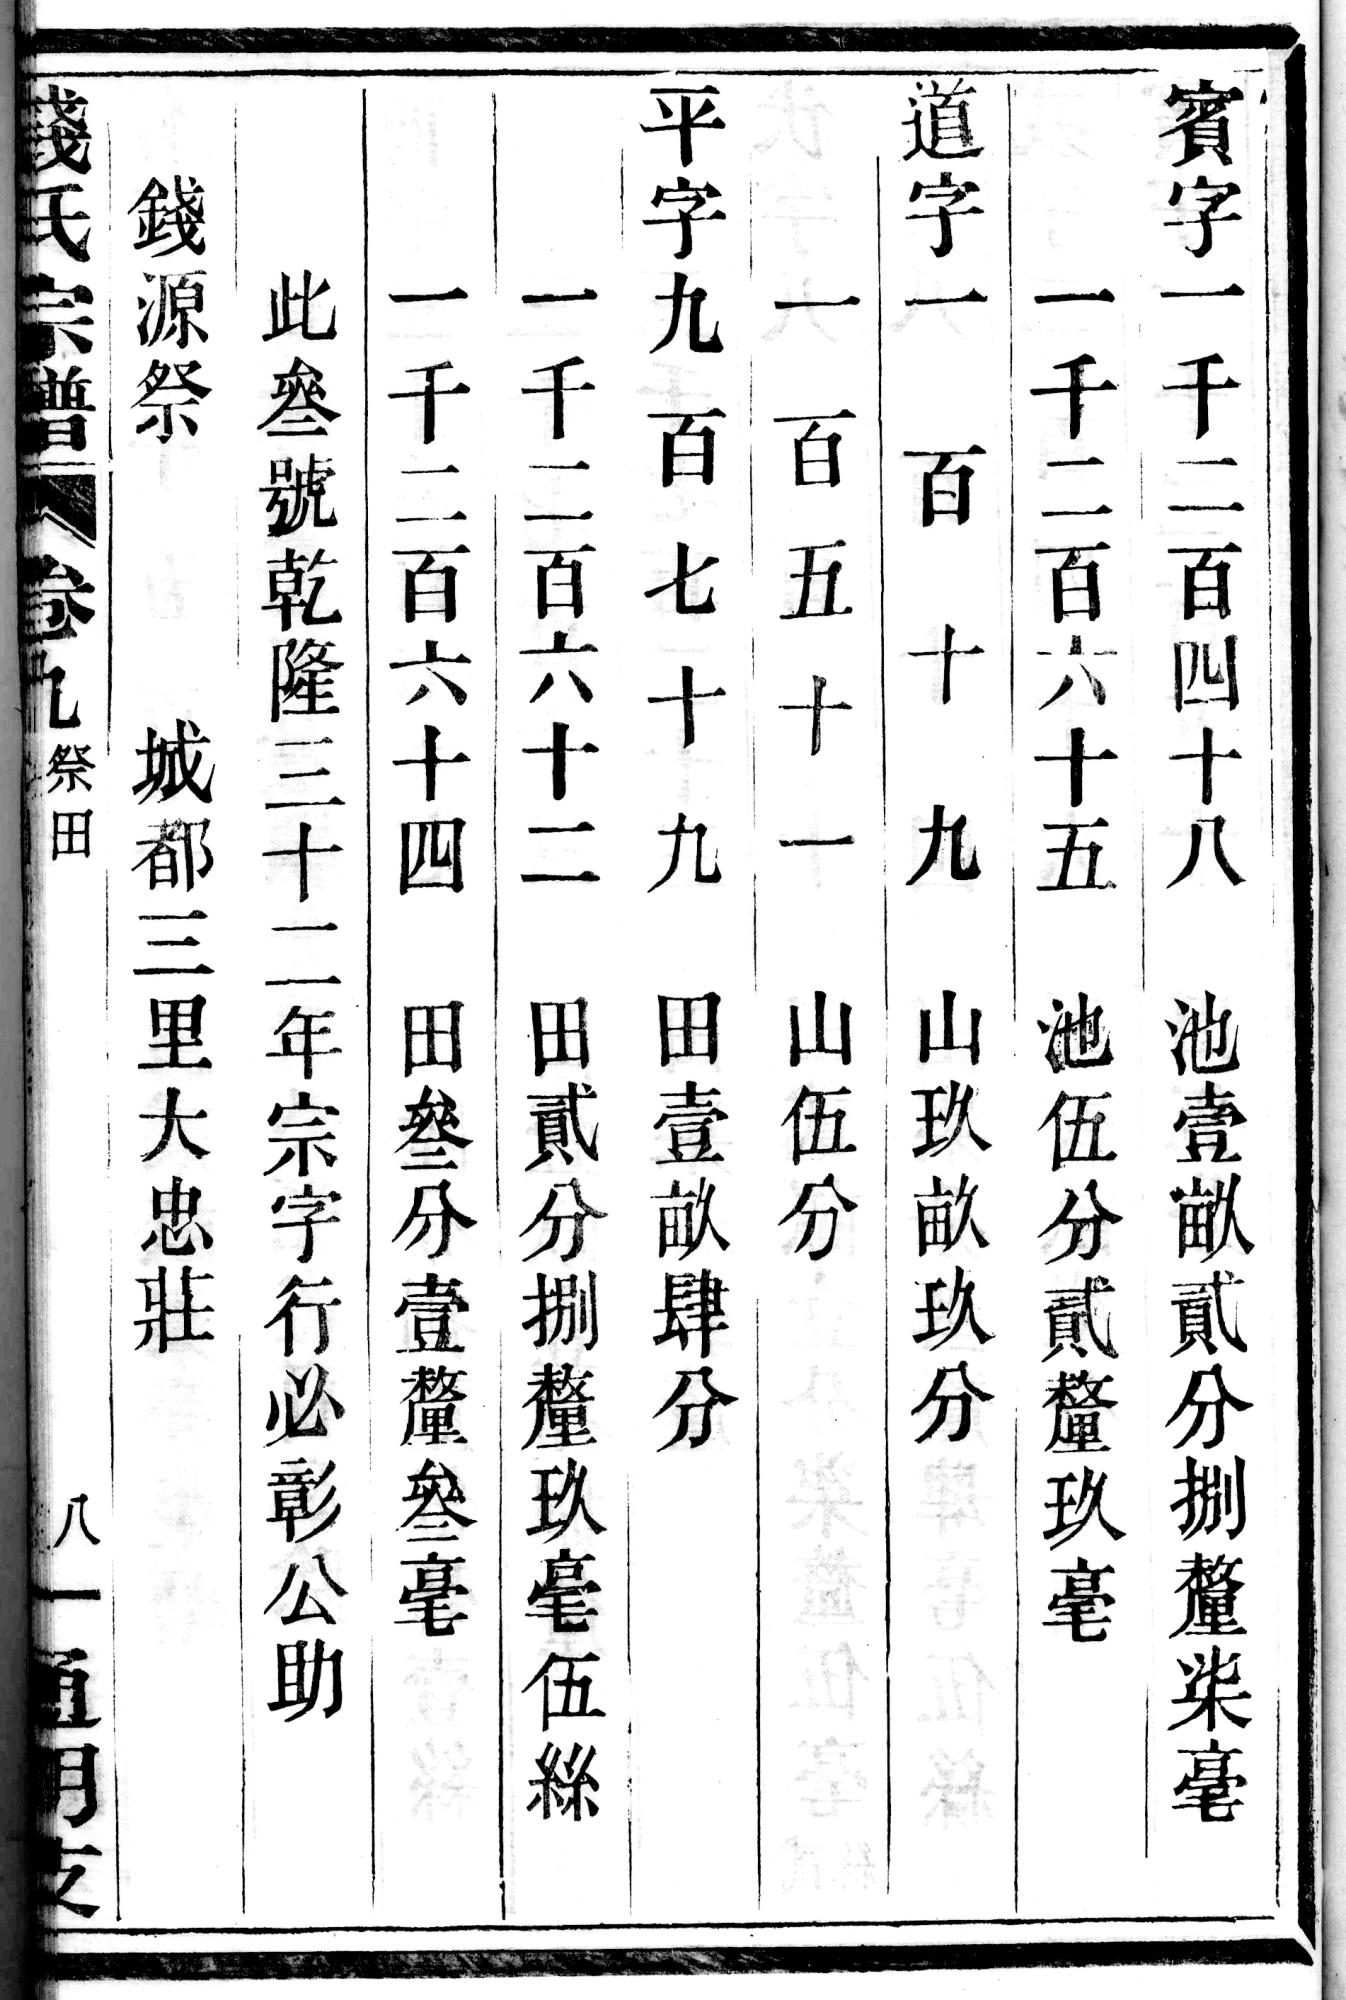 賓字一千二百四十八 池壹畝貳分捌釐柒毫
一千二百六十五 池伍分貳釐玖毫
道字一百十九 山玖畝玖分
一百五十一 山伍分
平字九百七十九 田壹畝肆分
一千二百六十二 田貳分捌釐玖毫伍絲
一千二百六十四 田叄分壹釐叄毫
此叄號乾隆三十二年宗字行必彰公助
錢源祭 城都三里大忠莊
錢氏宗譜 卷九 祭田 八 通明支